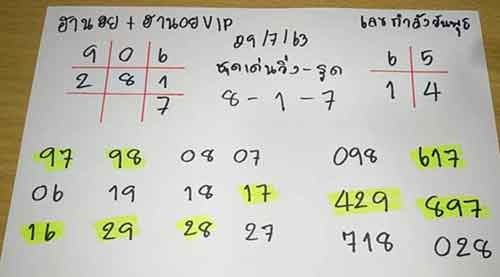 ฮานอย + ฮานอยVIP
29/7/63
เลขกำลังวันพุธ
9 0 6
2 8 1
7
6 5
1 4
ชุดเด่นวิ่ง-รูด
8 - 1 - 7
97 98 08 07 098 617
06 19 18 17 429 897
16 29 28 27 718 028